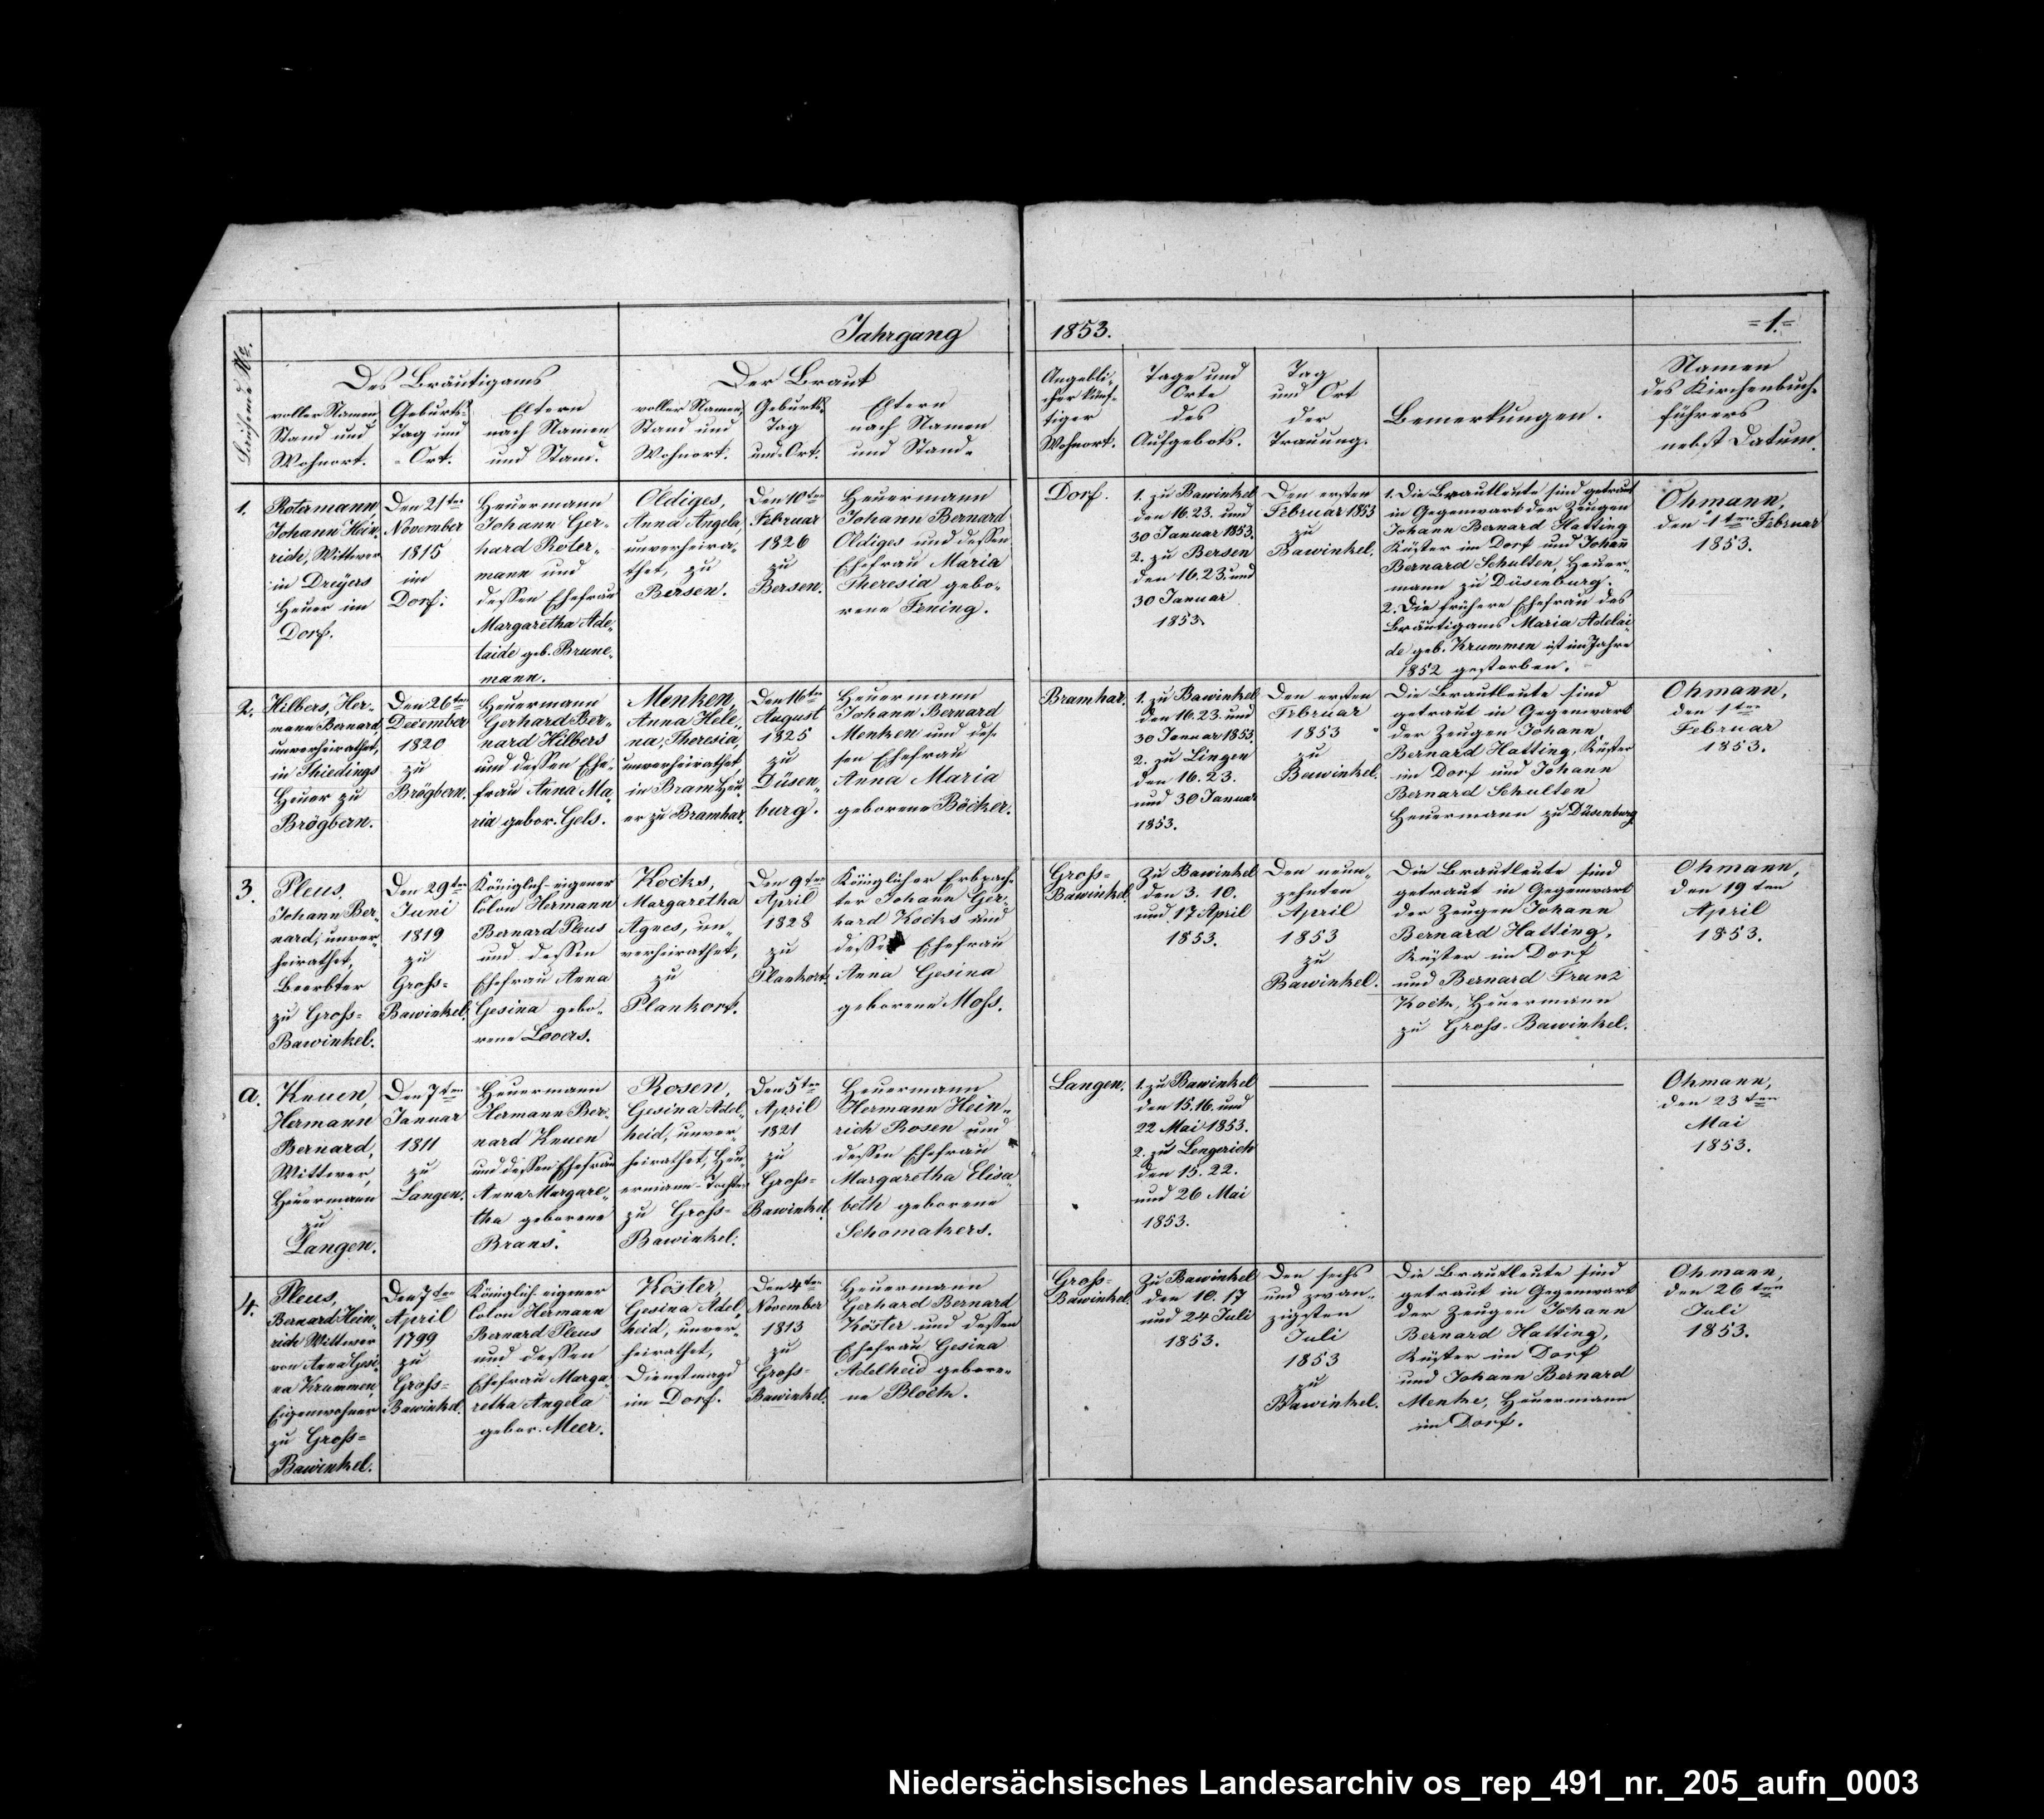 Jahrgang 1853.
=1.=
Laufende No.
Des Bräutigams
Der Braut
voller Namen
Stand und
Wohnort.
Geburts-
Tag und
-Ort.
Eltern
nach Namen
und Stand.
voller Namen
Stand und
Wohnort.
Geburts-
Tag
und Ort.
Eltern
nach Namen
und Stand.
Angebli-
cher künf-
tiger
Wohnort.
Tage und
Orte
des
Aufgebots.
Tag
und Ort
der
Trauung.
Bemerkungen.
Namen
des Kirchenbuch-
führers
nebst Datum.
1.
Rotermann,
Johann Hein-
rich, Wittwer
in Dreÿers
Heuer im
Dorf.
Den 21ten
November
1815
im
Dorf.
Heuermann
Johann Ger-
hard Roter-
mann und
dessen Ehefrau
Margaretha Ade-
laide geb. Brune-
mann.
Oldiges,
Anna Angela,
unverheira-
thet, zu
Bersen.
Den 10ten
Februar
1826
zu
Bersen.
Heuermann
Johann Bernard
Oldiges und dessen
Ehefrau Maria
Theresia gebo-
rene
Dorf.
1. zu Bawinkel
den 16. 23. und
30 Januar 1853.
2. zu Bersen
den 16. 23. und
30 Januar
1853.
Den ersten
Februar 1853
zu
Bawinkel.
1. Die Brautleute sind getraut
in Gegenwart der Zeugen
Johann Bernard Hatting
Küster im Dorf und Johann
Bernard Schulten, Heuer-
mann zu Düsenburg.
2. Die frühere Ehefrau des
Bräutigams Maria Adelai-
de geb. Krummen ist im Jahre
1852 gestorben.
Ohmann,
den 1ten Februar
1853.
2.
Hilbers, Her-
mann Bernard,
unverheirathet,
in Thiedings
Heuer zu
Brögbern.
Den 26ten
December
1820
zu
Brögbern.
Heuermann
Gerhard Ber-
nard Hilbers
und dessen Ehe-
frau Anna Ma-
ria gebor. Gels.
Menken,
Anna Hele-
na, Theresia,
unverheirathet,
in Bram Heu-
er zu Bramhar.
Den 16ten
August
1825
zu
Düsen-
burg.
Heuermann
Johann Bernard
Menken und des-
sen Ehefrau
Anna Maria
geborene Böcker.
Bramhar.
1. zu Bawinkel
den 16. 23. und
30 Januar 1853.
2. zu Lingen
den 16. 23.
und 30 Januar
1853.
Den ersten
Februar
1853
zu
Bawinkel.
Die Brautleute sind
getraut in Gegenwart
der Zeugen Johann
Bernard Hatting, Küster
im Dorf und Johann
Bernard Schulten
Heuermann zu Düsenburg.
Ohmann,
den 1ten
Februar
1853.
3.
Pleus,
Johann Ber-
nard, unver-
heirathet,
Beerbter
zu Groß-
Bawinkel.
Den 29ten
Juni
1819
zu
Groß-
Bawinkel.
Königlich-eigener
Colon Hermann
Bernard Pleus
und dessen
Ehefrau Anna
Gesina gebo-
rene
Kocks,
Margaretha
Agnes, un-
verheirathet,
zu
Plankort.
Den 9ten
April
1828
zu
Plankort.
Königlicher Erbpach-
ter Johann Ger-
hard Kocks und
dessen Ehefrau
Anna Gesina
geborene Moss.
Groß-
Bawinkel.
Zu Bawinkel
den 3. 10.
und 17 April
1853.
Den neun-
zehnten
April
1853
zu
Bawinkel.
Die Brautleute sind
getraut in Gegenwart
der Zeugen Johann
Bernard Hatting,
Küster im Dorf
und Bernard Franz
Kock, Heuermann
zu Groß-Bawinkel.
Ohmann,
den 19ten
April
1853.
a.
Knuen,
Hermann
Bernard,
Wittwer,
Heuermann
zu
Langen.
Den 7ten
Januar
1811
zu
Langen.
Heuermann
Hermann Ber-
nard Knuen
und dessen Ehefrau
Anna Margare-
tha geborene
Brans.
Rosen,
Gesina Adel-
heid, unver-
heirathet, Heu-
ermann-Tochter
zu Groß-
Bawinkel.
Den 5ten
April
1821
zu
Groß-
Bawinkel.
Heuermann
Hermann Hein-
rich Rosen und
dessen Ehefrau
Margaretha Elisa-
beth geborene
Schomakers.
Langen.
1. zu Bawinkel
den 15. 16. und
22 Mai 1853.
2. zu Lengerich
den 15. 22.
und 26 Mai
1853.
Ohmann,
den 23ten
Mai
1853.
4.
Pleus,
Bernard Hein-
rich Wittwer
von Anna Gesi-
na Krummen,
Eigenwohner
zu Groß-
Bawinkel.
Den 7ten
April
1799
zu
Groß-
Bawinkel.
Königlich-eigener
Colon Hermann
Bernard Pleus
und dessen
Ehefrau Marga-
retha Angela
gebor. Meer.
Köster,
Gesina Adel-
heid, unver-
heirathet,
Dienstmagd
im Dorf.
Den 4ten
November
1813
zu
Groß-
Bawinkel.
Heuermann
Gerhard Bernard
Köster und dessen
Ehefrau Gesina
Adelheid gebore-
ne Block.
Groß-
Bawinkel.
Zu Bawinkel
den 10. 17
und 24 Juli
1853.
Den sechs
und zwan-
zigsten
Juli
1853
zu
Bawinkel.
Die Brautleute sind
getraut in Gegenwart
der Zeugen Johann
Bernard Hatting,
Küster im Dorf
und Johann Bernard
Menke, Heuermann
im Dorf.
Ohmann,
den 26ten
Juli
1853.
Niedersächsisches Landesarchiv os_rep_491_nr._205_aufn_0003